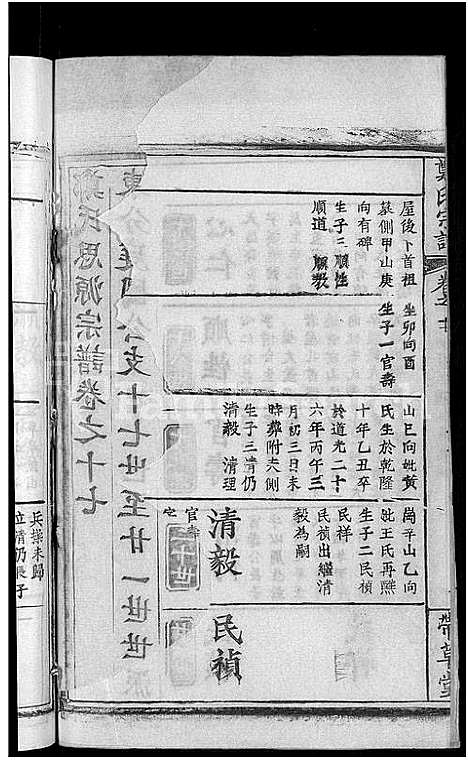 鄭氏宗譜
帶草堂
屋後卜首祖
墓側甲山庚
向有碑
生子三 順性
順道 順毅
坐卯向酉
生子一官壽
山巳向妣黄
氏生於乾隆
十年乙丑卒
於道光二十
六年丙午三
月初三日未
時葬附夫側
生子三清仍
清毅 清理
崗辛山乙向
妣王氏再醮
生子二民禎
民祥
民禎出繼清
毅為嗣
官壽
清毅
民禎
公支十七世至廿一世世派
鄭氏思源宗譜卷之十七
兵擄未歸
立清仍長子